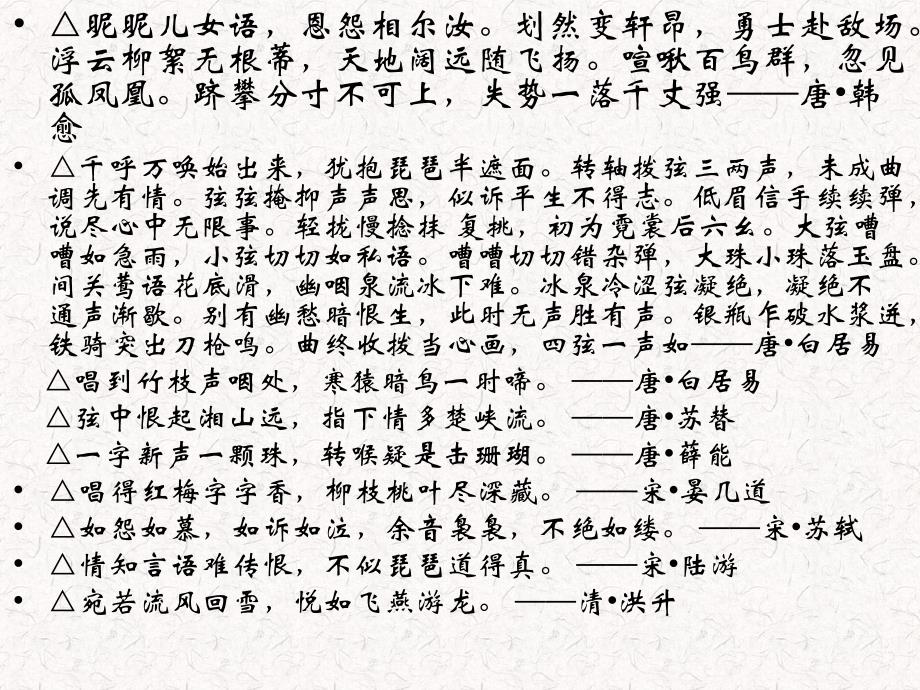 • △昵昵儿女语，恩怨相尔汝。划然变轩昂，勇士赴敌场。
浮云柳絮无根蒂，天地阔远随飞扬。喧啾百鸟群，忽见
孤凤凰。跻攀分寸不可上，失势一落千丈强——唐•韩
愈
• △千呼万唤始出来，犹抱琵琶半遮面。转轴拨弦三两声，未成曲
调先有情。弦弦掩抑声声思，似诉平生不得志。低眉信手续续弹，
说尽心中无限事。轻拢慢捻抹 复挑，初为霓裳后六幺。大弦嘈
嘈如急雨，小弦切切如私语。嘈嘈切切错杂弹，大珠小珠落玉盘。
间关莺语花底滑，幽咽泉流冰下难。冰泉冷涩弦凝绝，凝绝不
通声渐歇。别有幽愁暗恨生，此时无声胜有声。银瓶乍破水浆迸，
铁骑突出刀枪鸣。曲终收拨当心画，四弦一声如——唐•白居易
△唱到竹枝声咽处，寒猿暗鸟一时啼。 ——唐•白居易
△弦中恨起湘山远，指下情多楚峡流。 ——唐•苏替
△一字新声一颗珠，转喉疑是击珊瑚。 ——唐•薛能
• △唱得红梅字字香，柳枝桃叶尽深藏。 ——宋•晏几道
• △如怨如慕，如诉如泣，余音袅袅，不绝如缕。 ——宋•苏轼
• △情知言语难传恨，不似琵琶道得真。 ——宋•陆游
• △宛若流风回雪，悦如飞燕游龙。 ——清•洪升